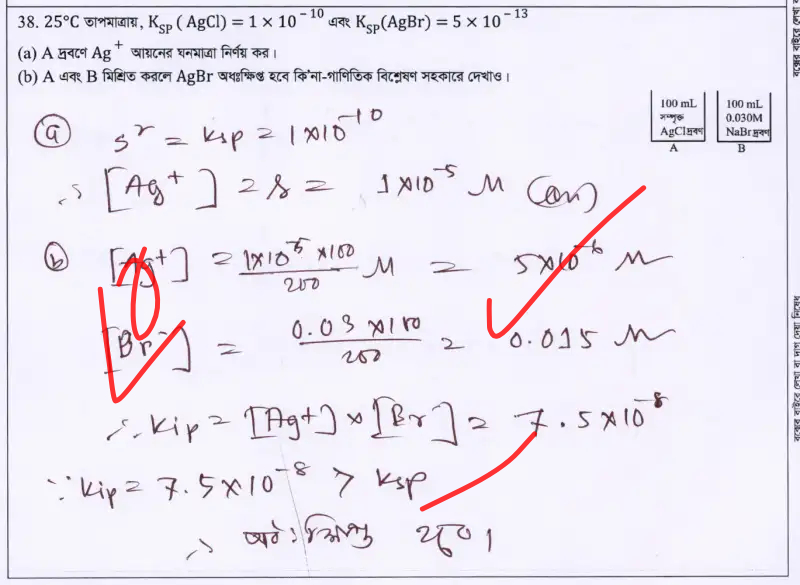 38. 25°C তাপমাত্রায়, K_SP (AgCl) = 1 × 10⁻¹⁰ এবং K_SP(AgBr) = 5 × 10⁻¹³
(a) A দ্রবণে Ag⁺ আয়নের ঘনমাত্রা নির্ণয় কর।
(b) A এবং B মিশ্রিত করলে AgBr অধঃক্ষিপ্ত হবে কি'না-গাণিতিক বিশ্লেষণ সহকারে দেখাও।
100 mL
সম্পৃক্ত
AgCl দ্রবণ
A
100 mL
0.030M
NaBr দ্রবণ
B
(a) s² = Ksp = 1×10⁻¹⁰
∴ [Ag⁺] = s = 1×10⁻⁵ M (Ans)
(b) [Ag⁺] = 1×10⁻⁵ ×100 / 200 M = 5×10⁻⁶ M
[Br⁻] = 0.03 ×100 / 200 = 0.015 M
∴ Kip = [Ag⁺] × [Br⁻] = 7.5×10⁻⁸
∵ Kip = 7.5×10⁻⁸ > Ksp
∴ অধঃক্ষিপ্ত হবে।
বক্সের বাইরে লেখা বা দাগ দেয়া নিষেধ